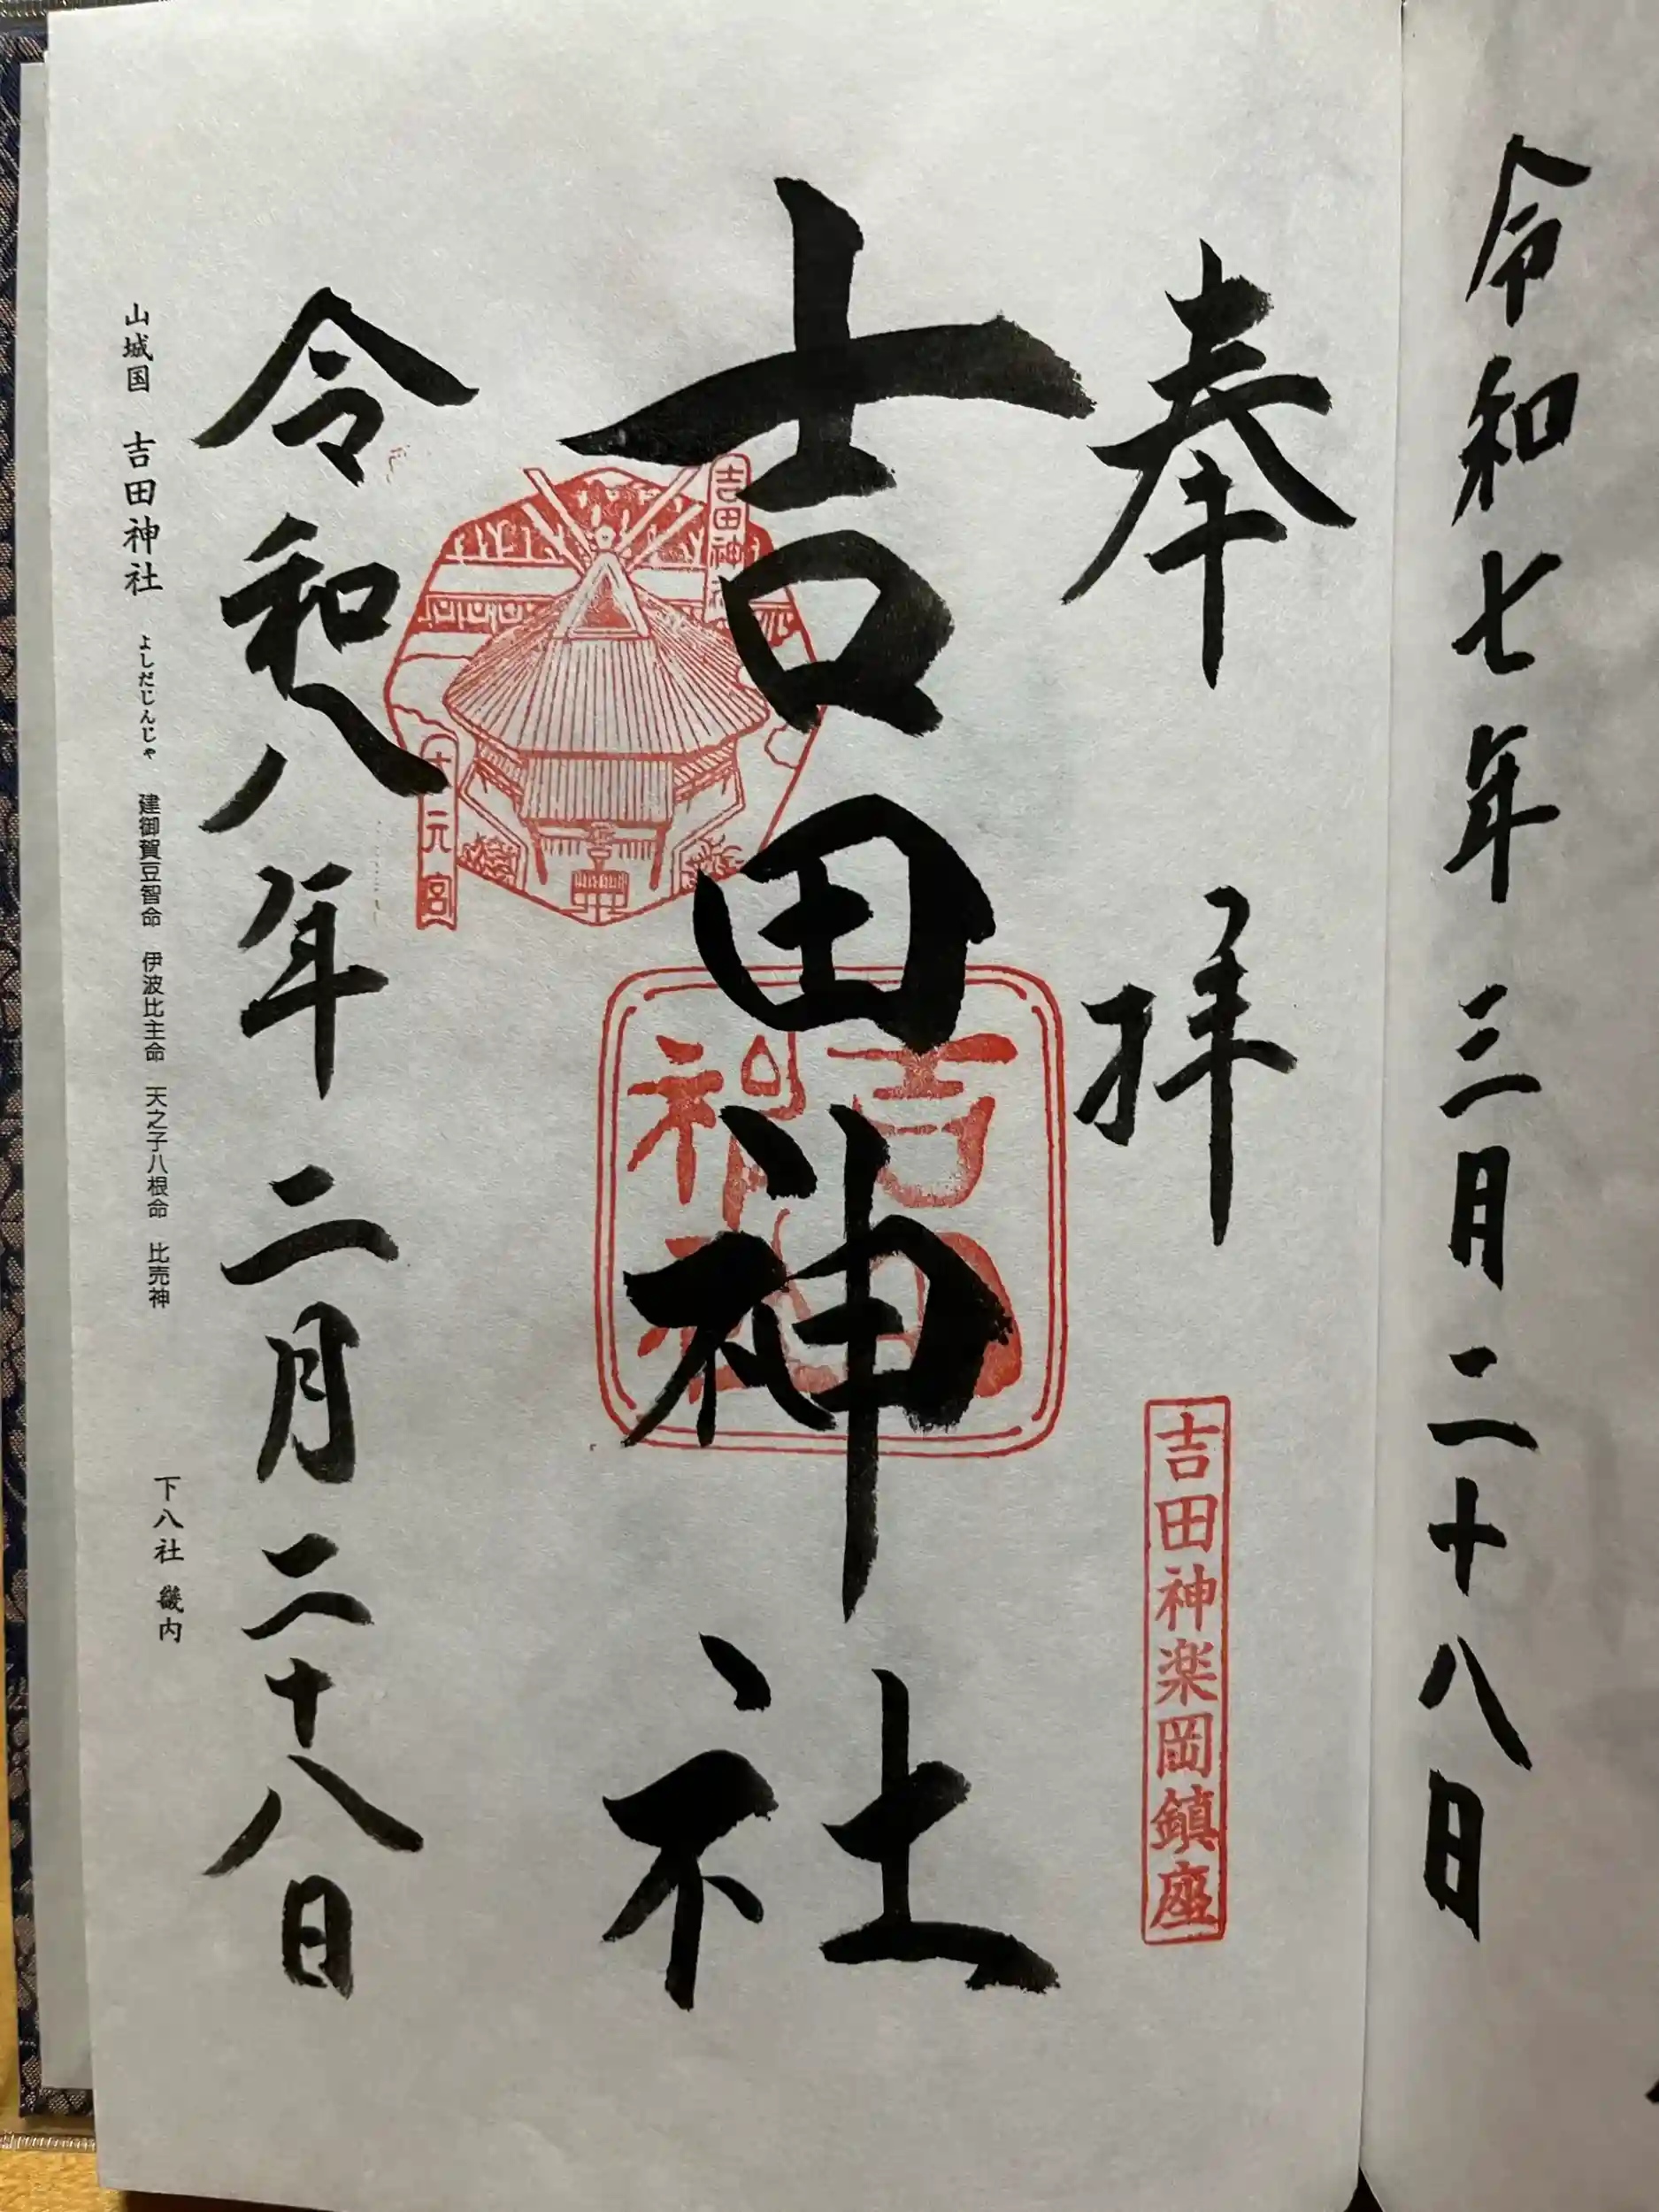 令和七年三月二十八日
奉拝
吉田神楽岡鎮座
吉田神社
吉田神社
吉田神
元宮
令和八年二月二十八日
山城国 吉田神社 よしだじんじゃ 建御賀豆智命 伊波比主命 天之子八根命 比売神 下八社 畿内